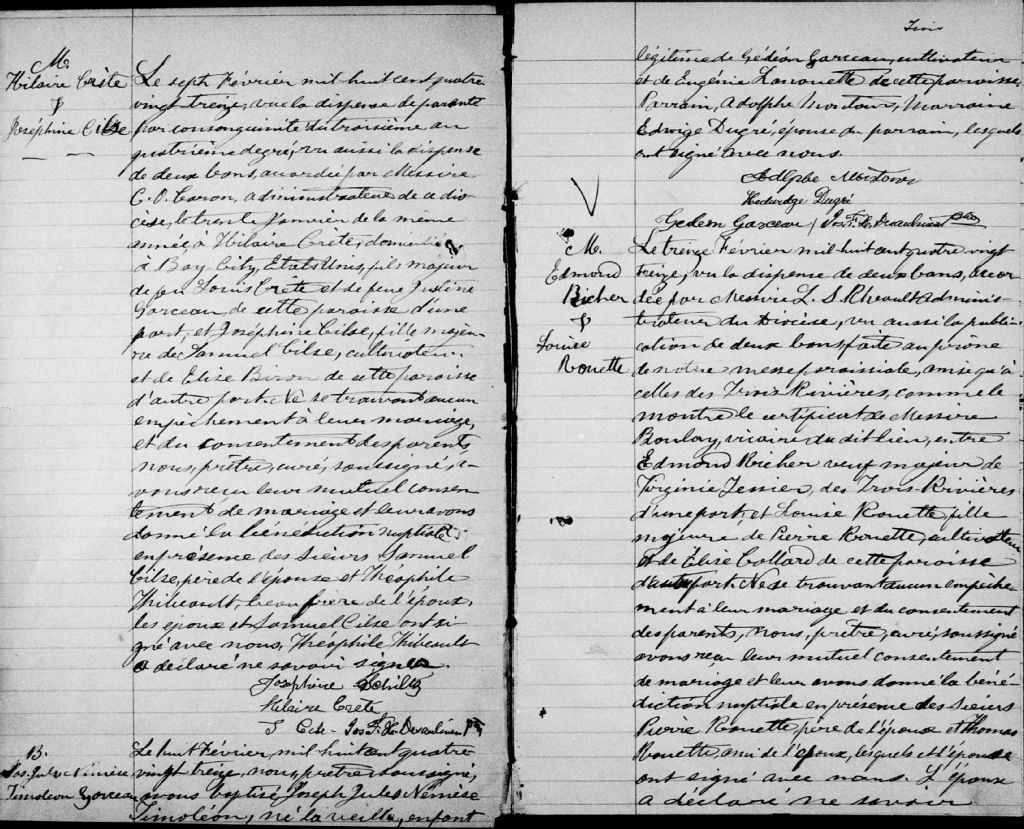 M.
Hilaire Crête
&
Joséphine Cilse
Le sept Février mil huit cent quatre
vingt treize, vu la dispense de parenté
par consanguinité du troisième au
quatrième degré, vu aussi la dispense
de deux bans, accordée par Messire
C. O. Caron, administrateur de ce dio
cèse, le trente Janvier de la même
année, à Hilaire Crête, domicilié
à Bay City, Etats Unis, fils majeur
de feu Louis Crête et de feue Justine
Garceau, de cette paroisse d'une
part, et Joséphine Cilse, fille majeu-
re de Samuel Cilse, cultivateur
et de Elise Biron de cette paroisse
d'autre part. Ne se trouvant aucun
empêchement à leur mariage,
et du consentement des parents,
nous, prêtre, curé, soussigné, a-
vons reçu leur mutuel consen-
tement de mariage et leur avons
donné la bénédiction nuptiale
en présence des sieurs Samuel
Cilse, père de l'épouse et Théophile
Thibeault, beau frère de l'époux,
les epoux et Samuel Cilse ont si
gné avec nous, Théophile Thibeault
a déclaré ne savoir signer.
Josephine Schiltz
Hilaire Crete
Jos. F. H.
B.
Jos. Jules Némèse
Timoléon Garceau
Le huit Février, mil huit cent quatre
vingt treize, nous, prêtre soussigné,
avons baptisé Joseph Jules Némèse
Timoléon, né la veille, enfant
légitime de Gédéon Garceau, cultivateur
et de Eugénie Lanouette de cette paroisse,
Parrain, Adolphe Montour, Marraine
Edwige Dugré, épouse du parrain, lesquels
ont signé avec nous.
Hedwidge Dugré
Gedeon Garceau Jos. F. H.
M.
Edmond
Richer
&
Louise
Rouette
Le treize Février mil huit cent quatre vingt
treize, vu la dispense de deux bans, accor
dée par Messire L. S. Rheault adminis-
trateur du Diocèse, vu aussi la publi-
cation de deux bans, faite au prône
de notre messe paroissiale, ainsi qu'à
celles des Trois Rivières, comme le
montre le certificat de Messire
Boulay, vicaire du dit lieu, entre
Edmond Richer veuf majeur de
Virginie Tessier, des Trois-Rivières
d'une part, et Louise Rouette fille
majeure de Pierre Rouette, cultivateur
et de Elise Collard de cette paroisse
d'autre part. Ne se trouvant aucun empêche
ment à leur mariage et du consentement
des parents, nous, prêtre, curé, soussigné
avons reçu leur mutuel consentement
de mariage et leur avons donné la béné-
diction nuptiale en présence des sieurs
Pierre Rouette, père de l'épouse et Thomas
Rouette, ami de l'époux, lesquels et l'épouse
ont signé avec nous. L'époux
a déclaré ne savoir